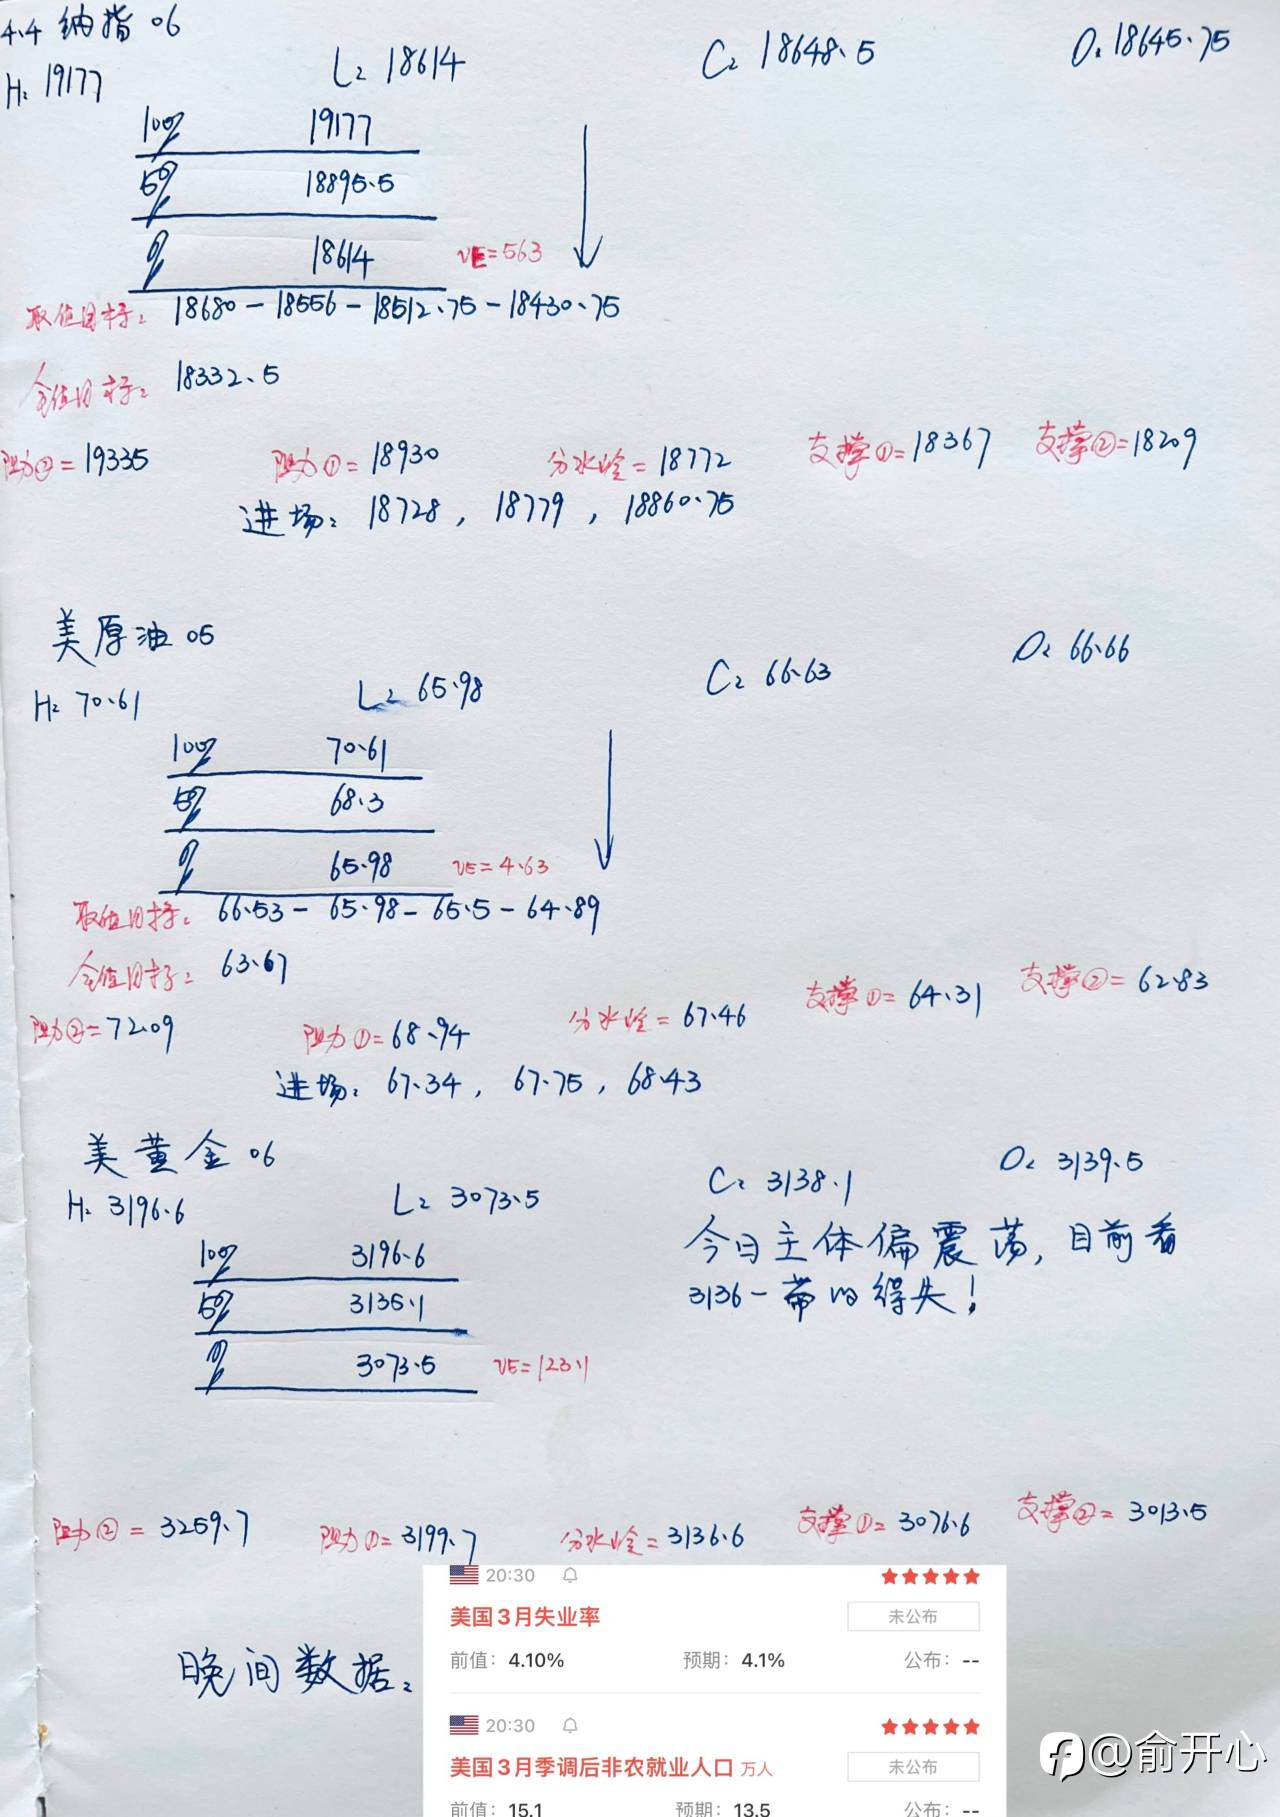 4.4 纳指 06
H: 19177 L: 18614 C: 18648.5 O: 18645.75
100% 19177
50% 18895.5
0% 18614 VE=563
取值目标: 18680-18556-18512.75-18430.75
全值目标: 18332.5
阻力②=19335 阻力①=18930 分水岭=18772 支撑①=18367 支撑②=18209
进场: 18728, 18779, 18860.75
美原油 05
H: 70.61 L: 65.98 C: 66.63 O: 66.66
100% 70.61
50% 68.3
0% 65.98 VE=4.63
取值目标: 66.53-65.98-65.5-64.89
全值目标: 63.67
阻力②=72.09 阻力①=68.94 分水岭=67.46 支撑①=64.31 支撑②=62.83
进场: 67.34, 67.75, 68.43
美黄金 06
H: 3196.6 L: 3073.5 C: 3138.1 O: 3139.5
今日主体偏震荡,目前看
3136一带的得失!
100% 3196.6
50% 3135.1
0% 3073.5 VE=123.1
阻力②=3259.7 阻力①=3199.7 分水岭=3136.6 支撑①=3076.6 支撑②=3013.5
晚间数据:
20:30
美国3月失业率 未公布
前值: 4.10% 预期: 4.1% 公布: --
20:30
美国3月季调后非农就业人口 万人 未公布
前值: 15.1 预期: 13.5 公布: --
@俞开心